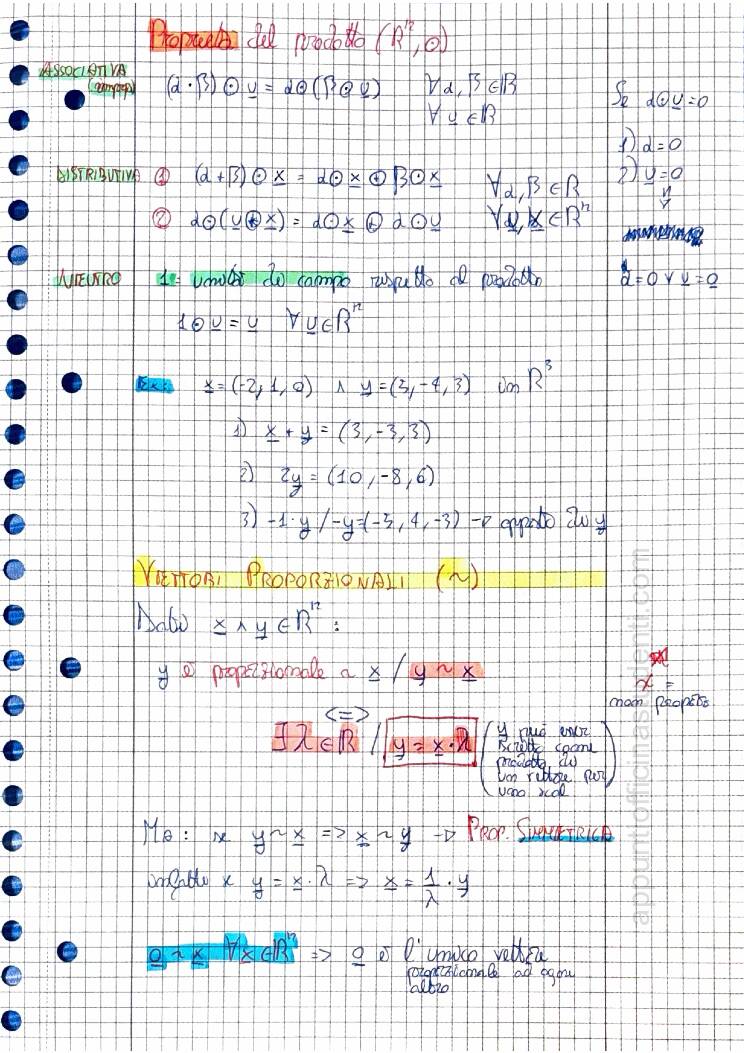 Proprietà del prodotto (ℝⁿ, ⊙)
ASSOCIATIVA
(α·β)⊙u = α⊙(β⊙u) ∀α, β∈ℝ
∀u∈ℝ
Se α⊙u=0
1) α=0
2) u=0
DISTRIBUTIVA ① (α+β)⊙x = α⊙x ⊕ β⊙x ∀α, β∈ℝ
② α⊙(u⊕x) = α⊙x ⊕ α⊙u ∀u, x∈ℝⁿ
α=0 ∨ u=0
NEUTRO 1= unità di campo rispetto al prodotto
1⊙u = u ∀u∈ℝⁿ
Ex: x=(-2, 1, 0) ∧ y=(5, -4, 3) in ℝ³
1) x + y = (3, -3, 3)
2) 2y = (10, -8, 6)
3) -1·y / -y=(-5, 4, -3) → opposto di y
VETTORI PROPORZIONALI (~)
Dati x ∧ y ∈ ℝⁿ:
y è proporzionale a x / y ~ x
≁ =
non proporz.
<=>
∃ λ ∈ ℝ / y = x·λ
(y può esser
scritto come
prodotto di
un vettore per
uno scal)
Ma: se y~x => x~y → PROP. SIMMETRICA
infatti se y = x·λ => x = 1/λ · y
0 ~ x ∀x∈ℝⁿ => 0 è l'unico vettore
proporzionale ad ogni
altro
appuntiofficinastudenti.com